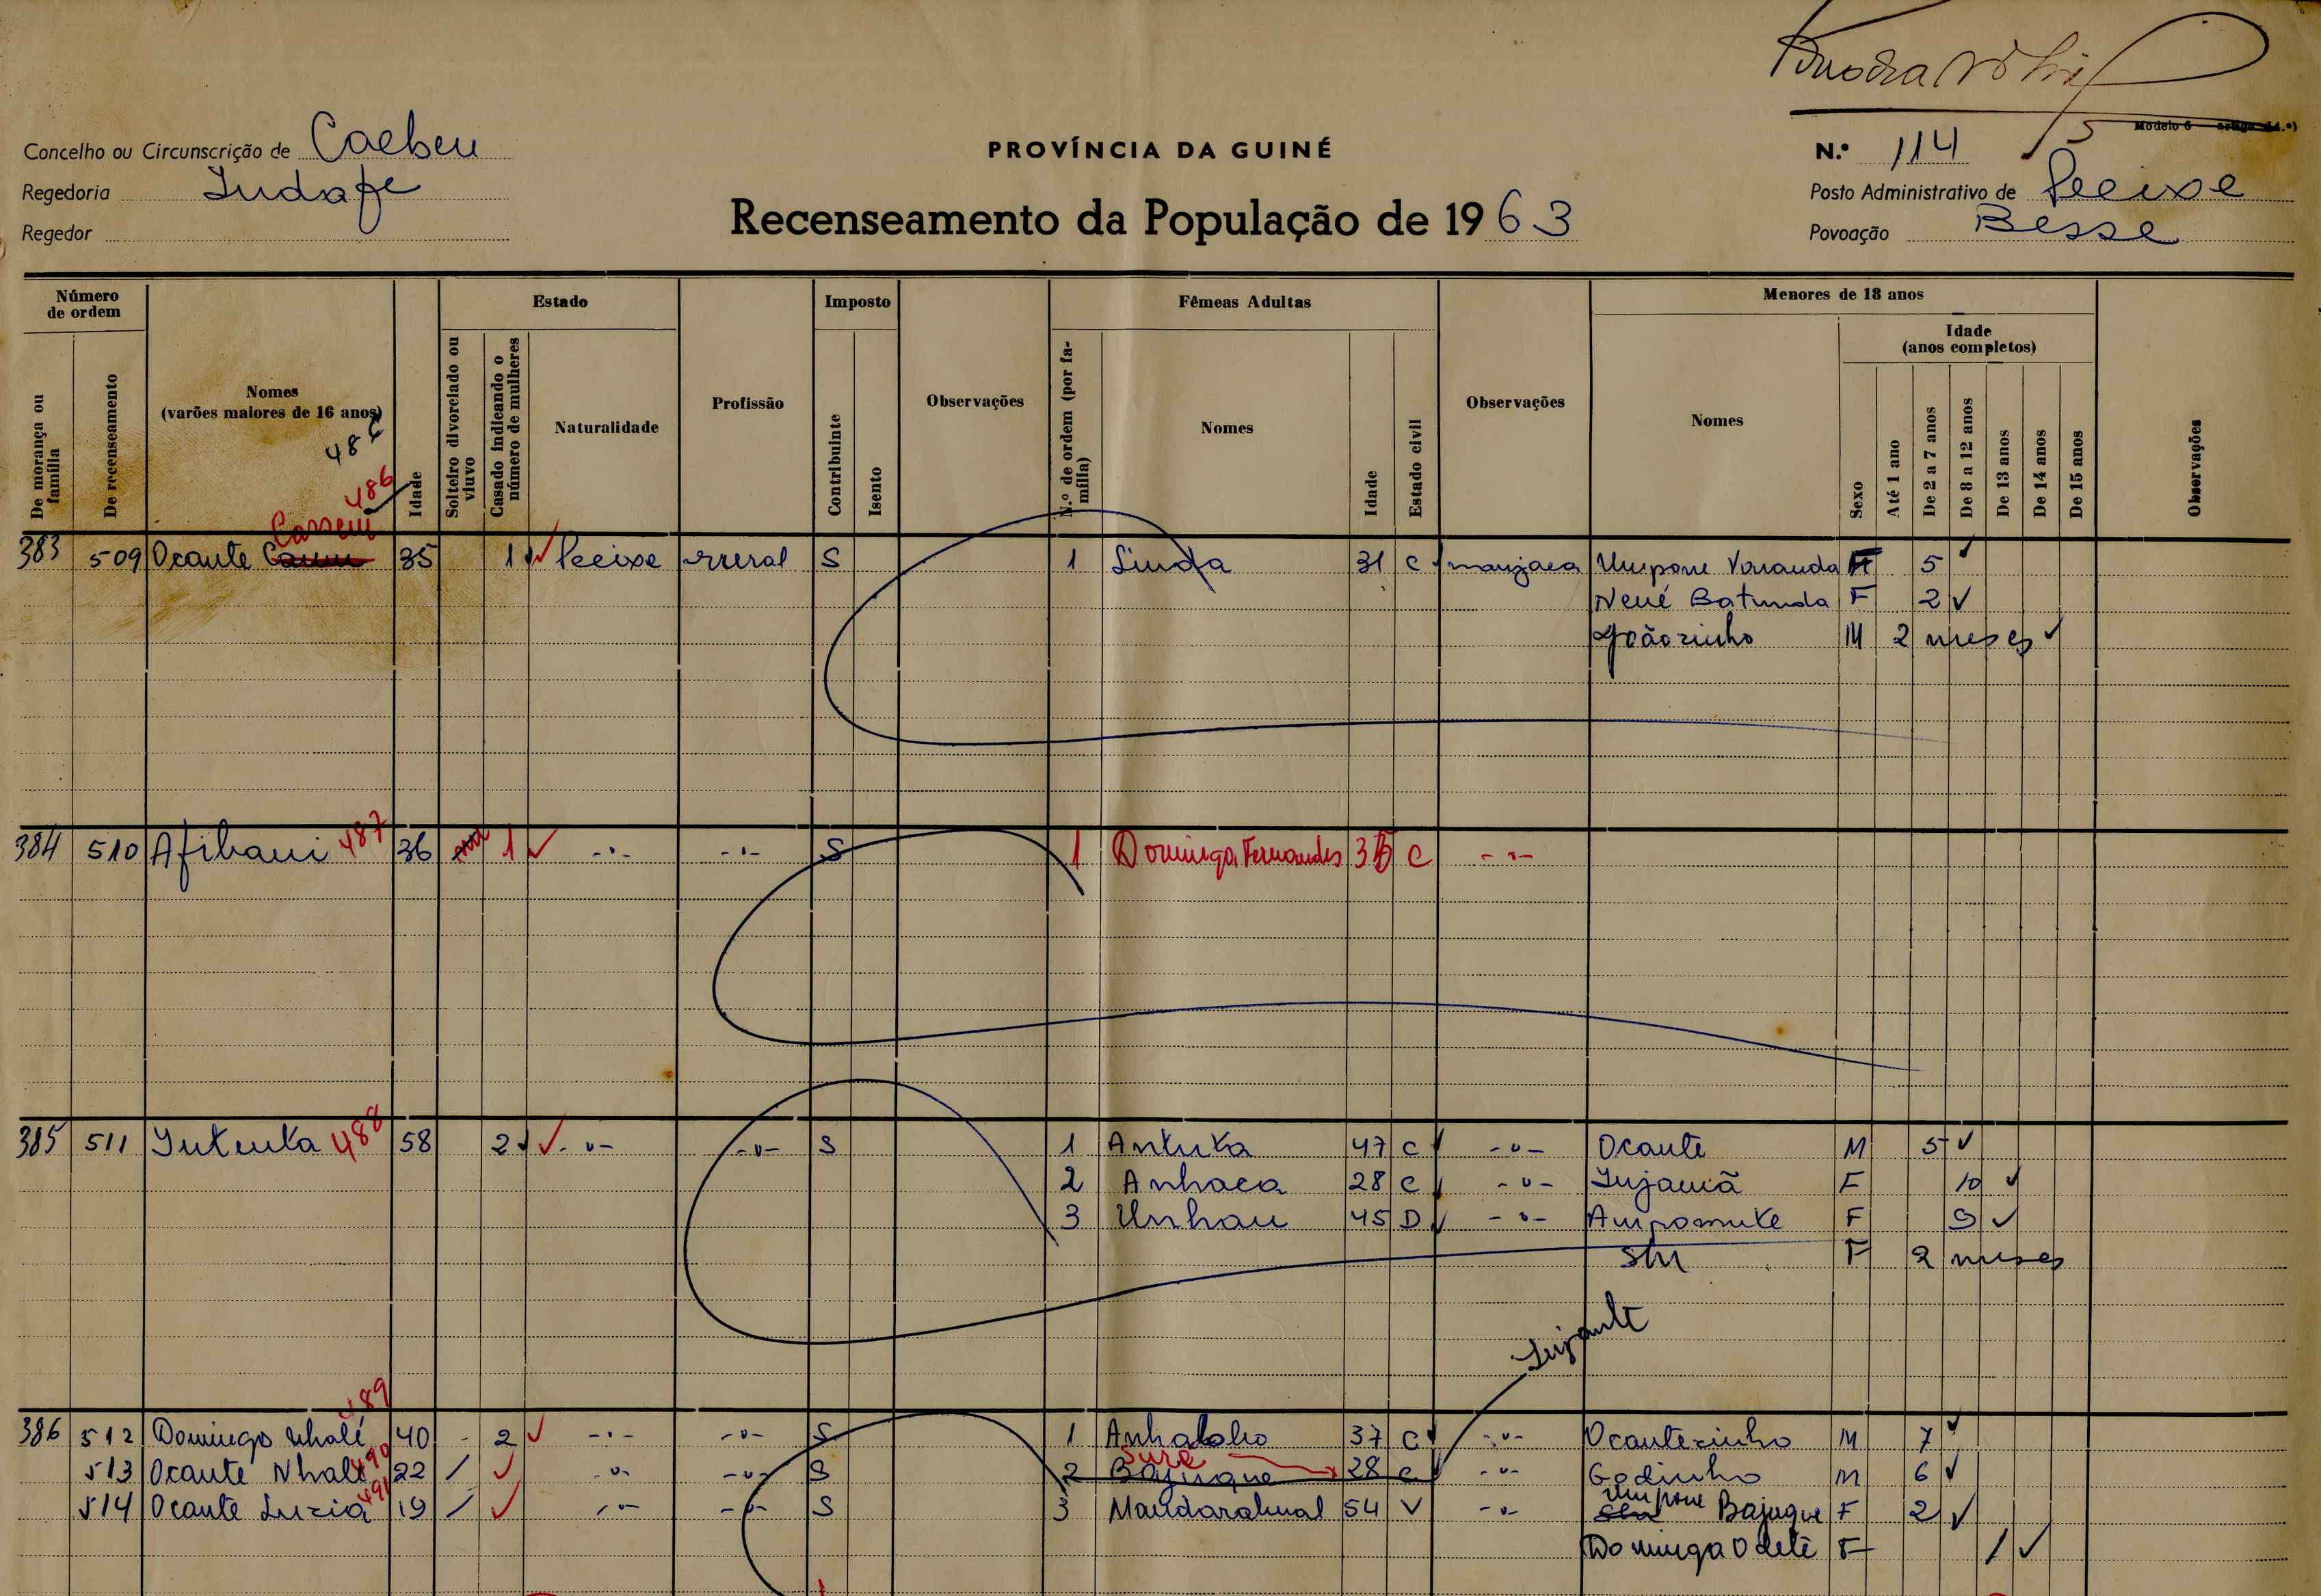 Modelo 6
Concelho ou Circunscrição de Caebeu
PROVÍNCIA DA GUINÉ
N.º 114
Regedoria
Posto Administrativo de Pecixe
Recenseamento da População de 1963
Regedor
Povoação Besse
Número de ordem
Estado
Imposto
Fêmeas Adultas
Menores de 18 anos
Idade (anos completos)
De morança ou família
De recenseamento
Nomes (varões maiores de 16 anos)
Idade
Solteiro divorciado ou viuvo
Casado indicando o número de mulheres
Naturalidade
Profissão
Contribuinte
Isento
Observações
N.º de ordem (por família)
Nomes
Idade
Estado civil
Observações
Nomes
Sexo
Até 1 ano
De 2 a 7 anos
De 8 a 12 anos
De 13 anos
De 14 anos
De 15 anos
Observações
486
Cassem
383 509 Ocante 35 1 Pecixe rural S 1 Linda 31 C manjaca Umpone Varanda F 5
Nené Batunda F 2
Joãozinho M 2 meses
384 510 Afibani 487 36 1 -"- -"- S 1 Dominga Fernandes 35 C -"-
385 511 Intenta 488 58 2 -"- -"- S 1 Antuta 47 C -"- Ocante M 5
2 Anhaca 28 C -"- Injamã F 10
3 Unhau 45 D -"- Ampomute F 9
S/n F 2 meses
489
386 512 Domingo Nhalé 40 2 -"- -"- S 1 Anhaloho 37 C -"- Ocantezinho M 7
513 Ocante Nhalé 490 22 / -"- -"- S 2 Bajuque 28 C -"- Godinho M 6
514 Ocante Luzia 491 19 / -"- -"- S 3 Mandarahual 54 V -"- Umpone Bajuque F 2
Dominga Odete F 1